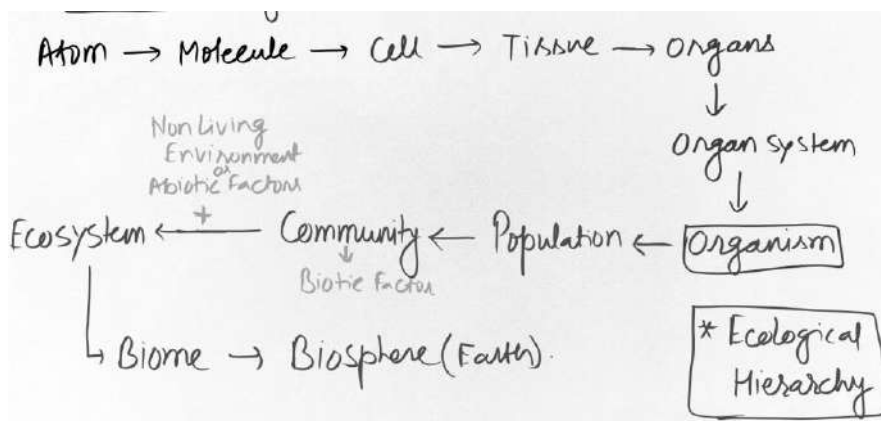 Atom → Molecule → Cell → Tissue → Organs
↓
Organ system
↓
Non Living
Environment
or
Abiotic Factors
+
Ecosystem ← Community ← Population ← Organism
↓
Biotic Factor
↳ Biome → Biosphere (Earth).
* Ecological
Hierarchy